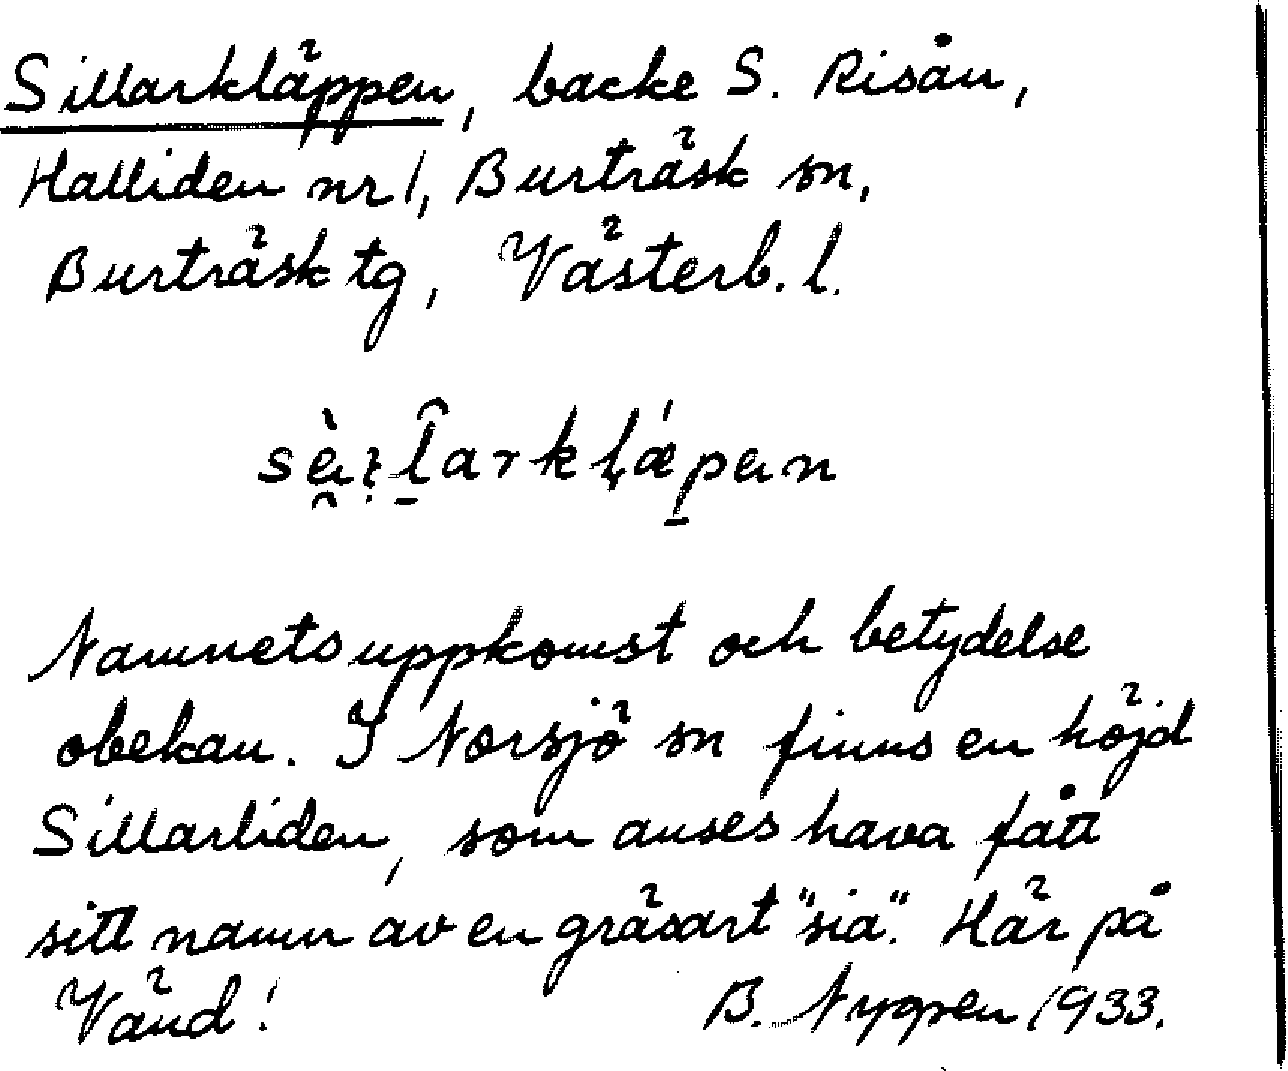 Sillarkläppen, backe S. Risån,
Halliden nr 1, Burträsk sn,
Burträsk tg, Västerb. l.
Namnets uppkomst och betydelse
obekan. I Norsjö sn finns en höjd
Sillarliden, som anses hava fått
sitt namn av en gräsart "sia". Här på
Vänd! B. Nygren 1933.